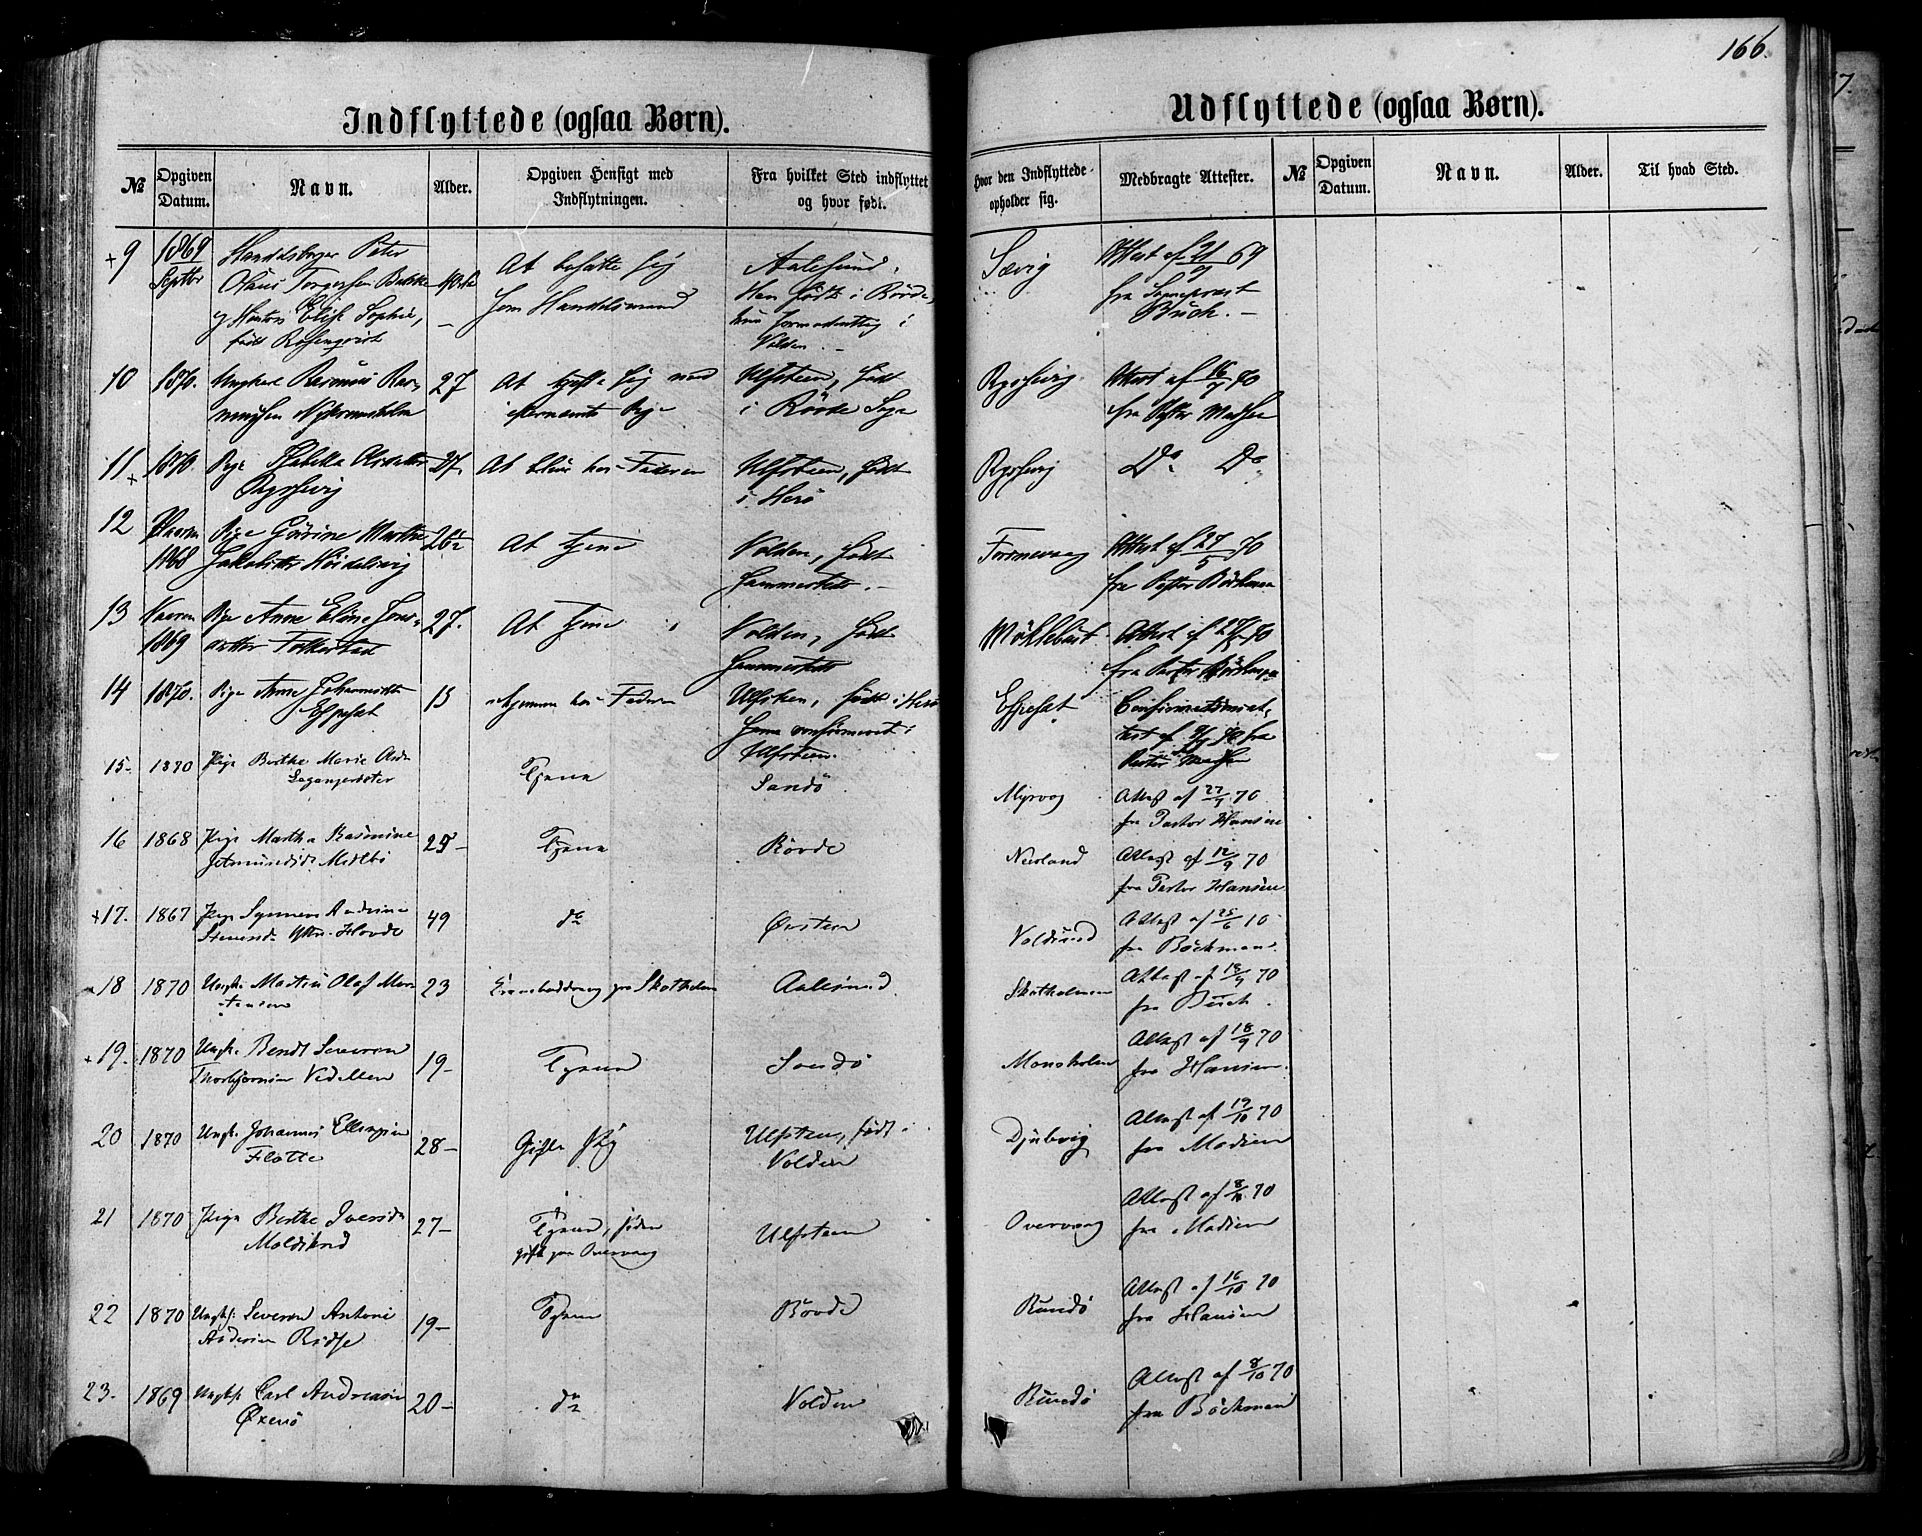 166.
Indflyttede (ogsaa Børn).
Udflyttede (ogsaa Børn).
№
Opgiven Datum.
Navn.
Alder.
Opgiven Hensigt med Indflytningen.
Fra hvilket Sted indflyttet og hvor født.
Hvor den Indflyttede opholder sig.
Medbragte Attester.
№
Opgiven Datum.
Navn.
Alder.
Til hvad Sted.
+9
1869
Septbr
Handelsborger Peter
Olaus Torgersen
og Hustru Elise Sophie,
født Rosenqvist
At bosætte sig
som Handelsmand
Aalesund,
Han født i Rövde
hun formodentlig i
Volden. –
Sævig
Attest af 21/9 69
fra Sogneprest
Buch. –
10
1870.
Ungkarl Rasmus Ras-
musen
27
At gifte sig med
Pige
Ulfsteen, født
i Rövde Sogn
Rysshevig
Attest af 16/7 70
fra Pastor Madsen
11
+
1870.
Pige Isabella
Rysshevig
27.
At blive hos Faderen
Ulfsteen, født
i Herö
Rysshevig
Do Do
12
Vaaren
1868
Pige Gurine Marthe
Jakobsdtr
26½
At tjene
Volden, født
sammesteds. –
Attest af 27/5 70
fra Pastor Böckman
13
Vaaren
1869
Pige Anne Eline Jons-
datter Folkestad
27.
At tjene
Volden, født
sammesteds
Möklebust
Attest af 27/5 70
fra Pastor Böckman
14
1870.
Pige Anne Johannesdtr
Espesæt
15
Hjemme hos Faderen
Ulfsteen, født i Herö
samt confirmeret i
Ulfsteen.
Espesæt
Confirmationsat-
test af 70 fra
Pastor Madsen
15-
1870
Pige Berthe Marie
Tjene
Sandö
Myrvog
Attest af 27/7 70
fra Pastor Hansen
16
1868
Pige Martha Rasmine
Jetmundsdt. Medlbö
25–
Tjene
Rövde
Nerland
Attest af 12/9 70
fra Pastor Hansen
+17.
1867
Pige Synneve Andrine
Hovde
49
do
Örsten
Voldsund
Attest af 25/6 70
fra Böckman.
18
1870
Ungk. Martin Olaf Mor-
tensen
23
paa Skotholmen
Aalesund
Skotholmen
Attest af 18/9 70
fra Buch.
+19.
1870
Ungk. Bendt Severen
Thorbjørnsen Vedellen
19–
Tjene
Sandö
Monsholmen
Attest af 18/9 70
fra Hansen.
20
1870
Ungk. Johannes Ellingsen
Flötte
28–
Gifte sig
Ulfsteen, født i
Volden
Djubvig
Attest af 19/10 70
fra Madsen
21
1870
Pige Berthe Iversdt.
Moldskred
27–
Tjene, siden
gift paa Overvaag
Ulfsteen
Overvaag
Attest af 8/10 70
fra Madsen
22
1870
Ungk. Severen Antoni
Andersen
19–
Tjene
Rövde
Rundö
Attest af 16/10 70
fra Hansen
23.
1869
Ungk. Carl Andreasen
Öxenö
20–
do
Volden
Rundö
Attest af 8/10 70
fra Böckman